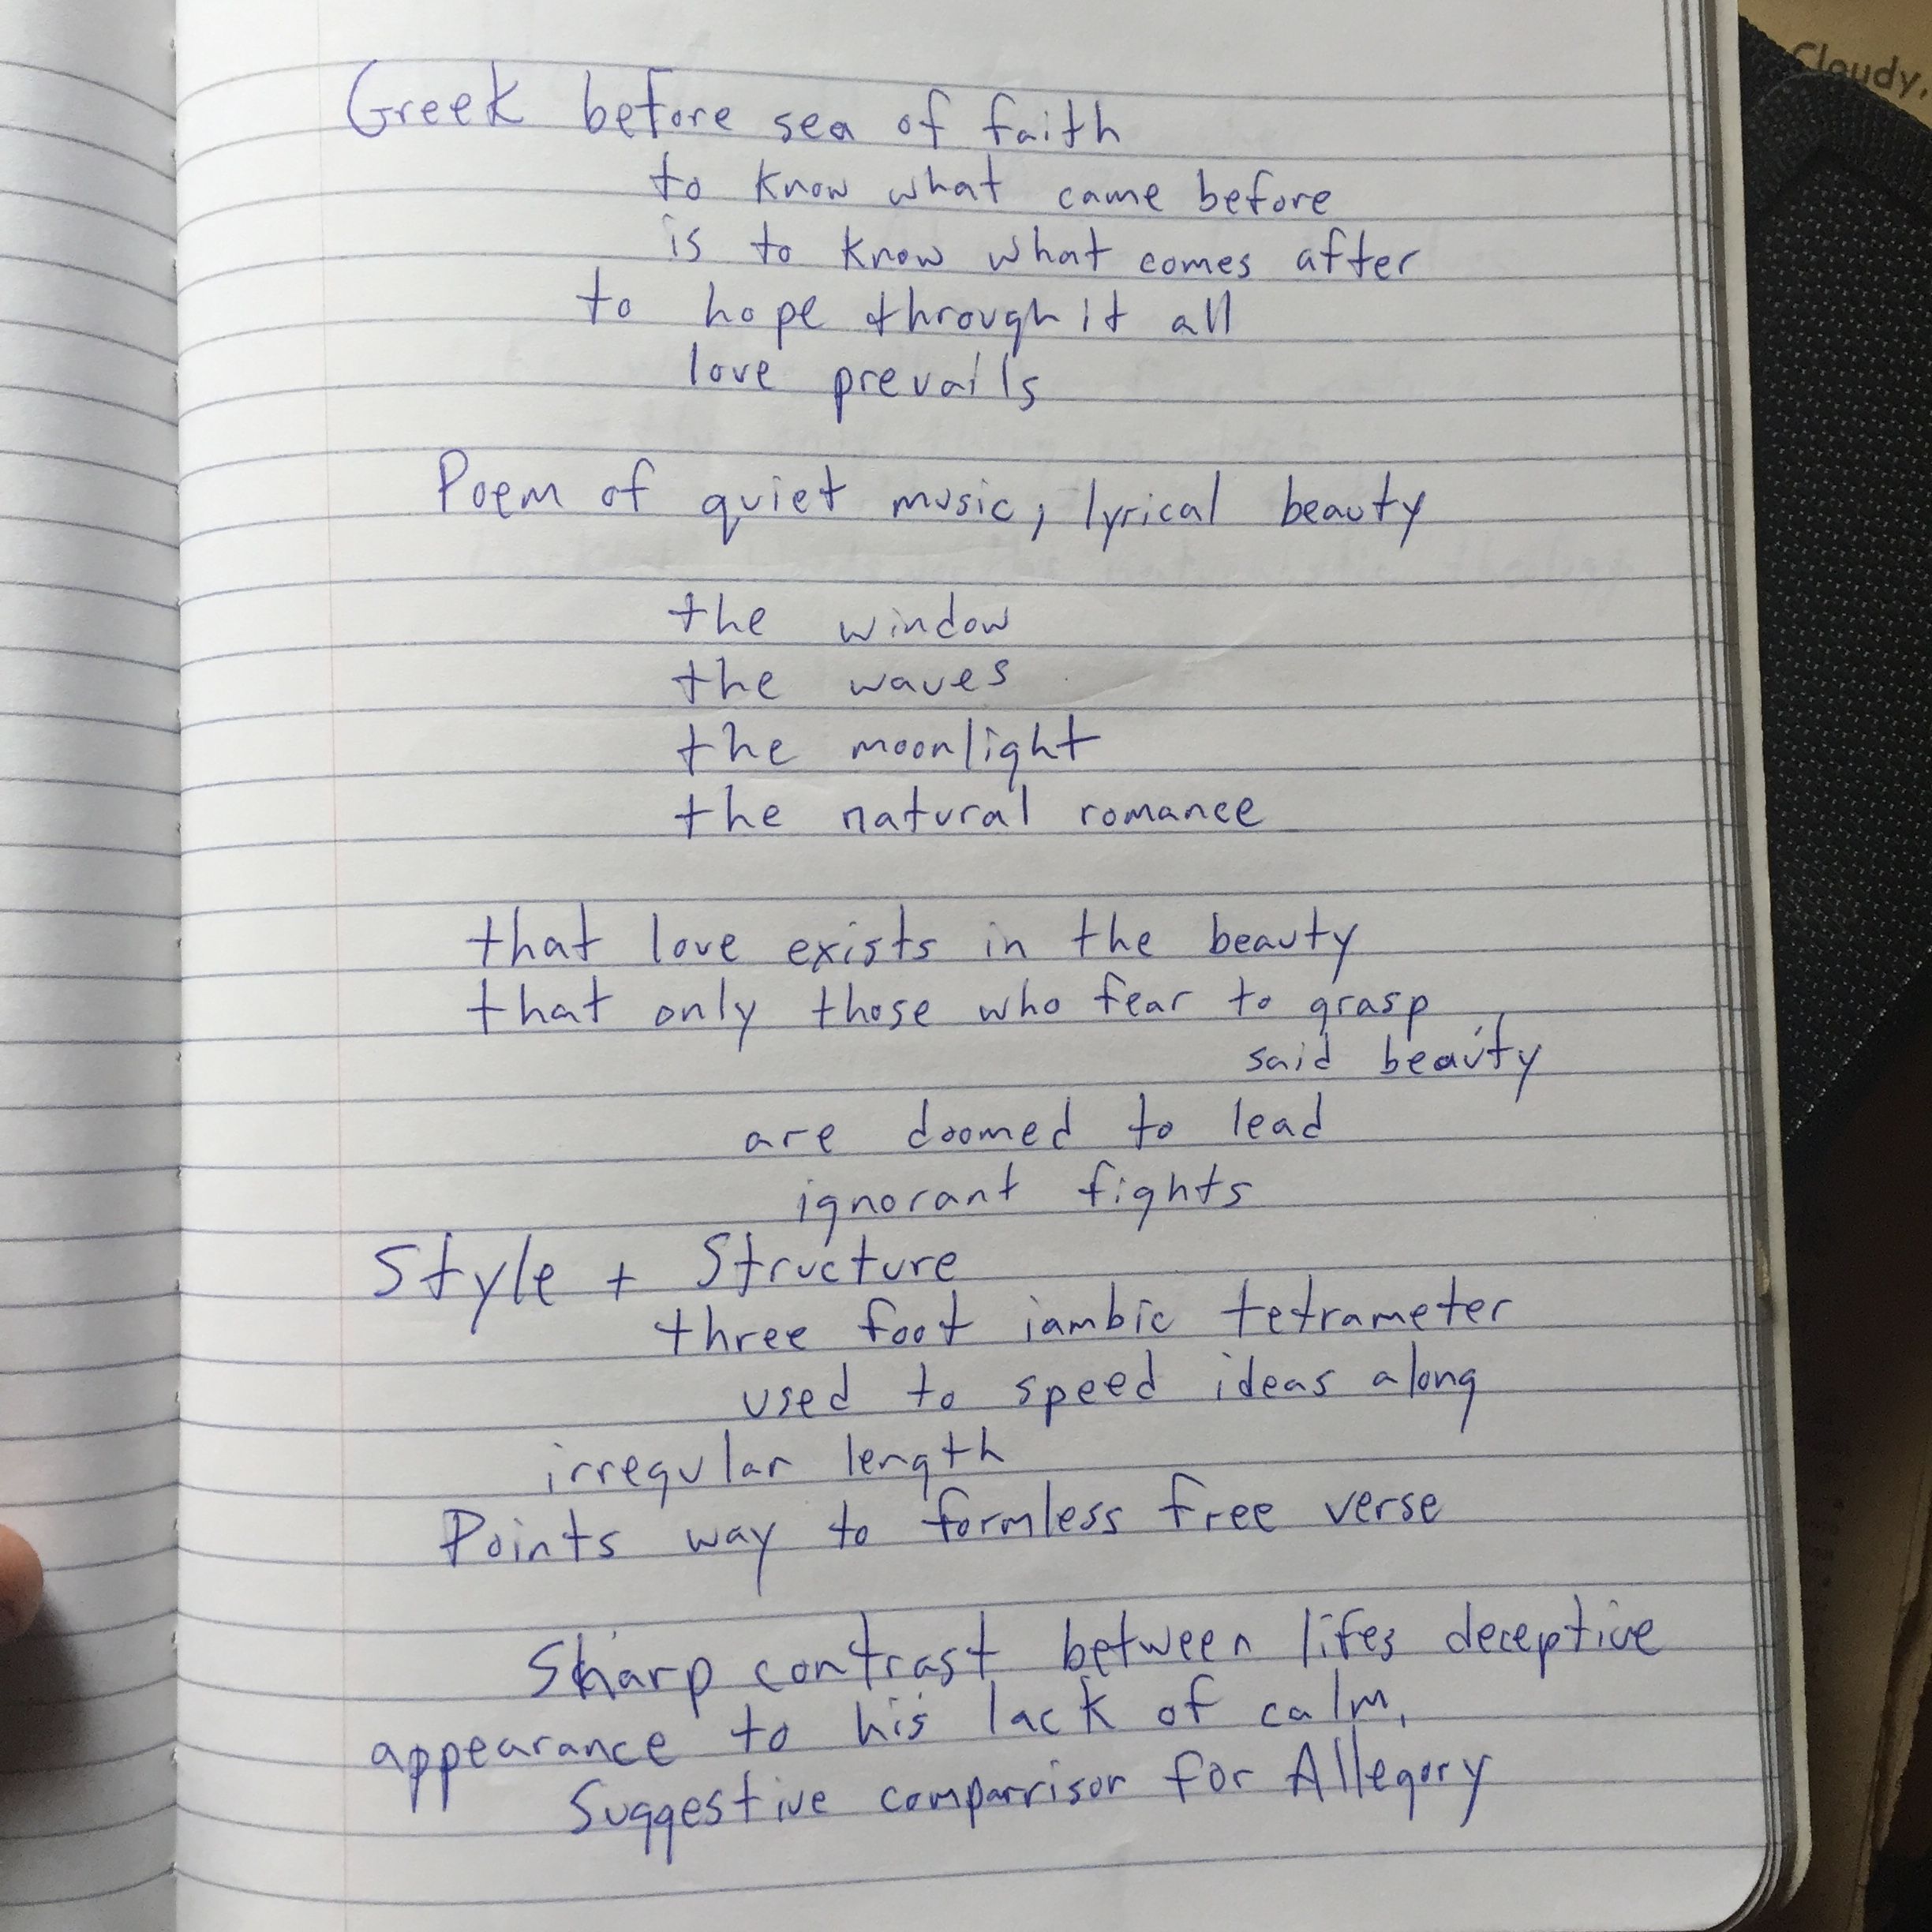 Cloudy,
Greek before sea of faith
to know what came before
is to know what comes after
to hope through it all
love prevails
Poem of quiet music, lyrical beauty
the window
the waves
the moonlight
the natural romance
that love exists in the beauty
that only those who fear to grasp
said beauty
are doomed to lead
ignorant fights
Style + Structure
three foot iambic tetrameter
used to speed ideas along
irregular length
Points way to formless free verse
Sharp contrast between lifes deceptive
appearance to his lack of calm,
Suggestive comparrison for Allegory